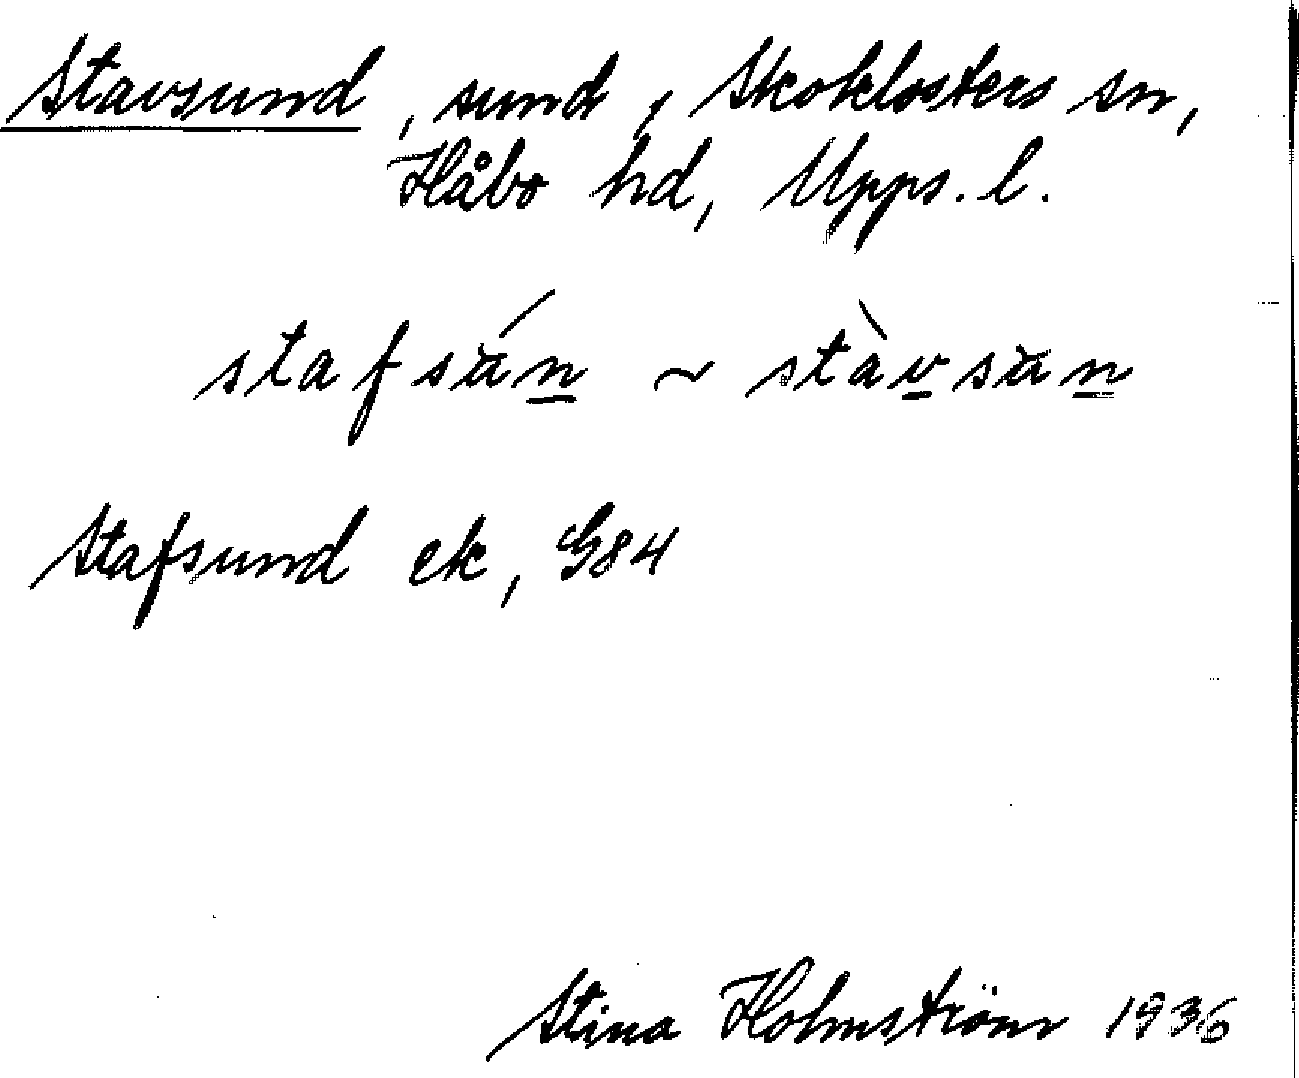 Stavsund, sund, Skoklosters sn,
Håbo hd, Upps. l.
stafsán ~ stàvsan
Stafsund ek, G84
Stina Holmström 1936